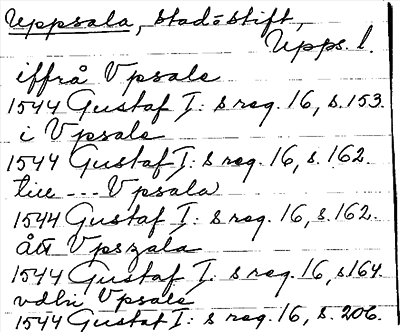 Uppsala, stad o stift,
Upps. l.
iffrå Vpsale
1544 Gustaf I: s reg. 16, s. 153.
i Vpsale
1544 Gustaf I: s reg. 16, s. 162.
till --- Vpsala
1544 Gustaf I: s reg. 16, s. 162.
ått Vpszala
1544 Gustaf I: s reg. 16, s 164.
Vpsale
1544 Gustaf I: s reg. 16, s. 206.